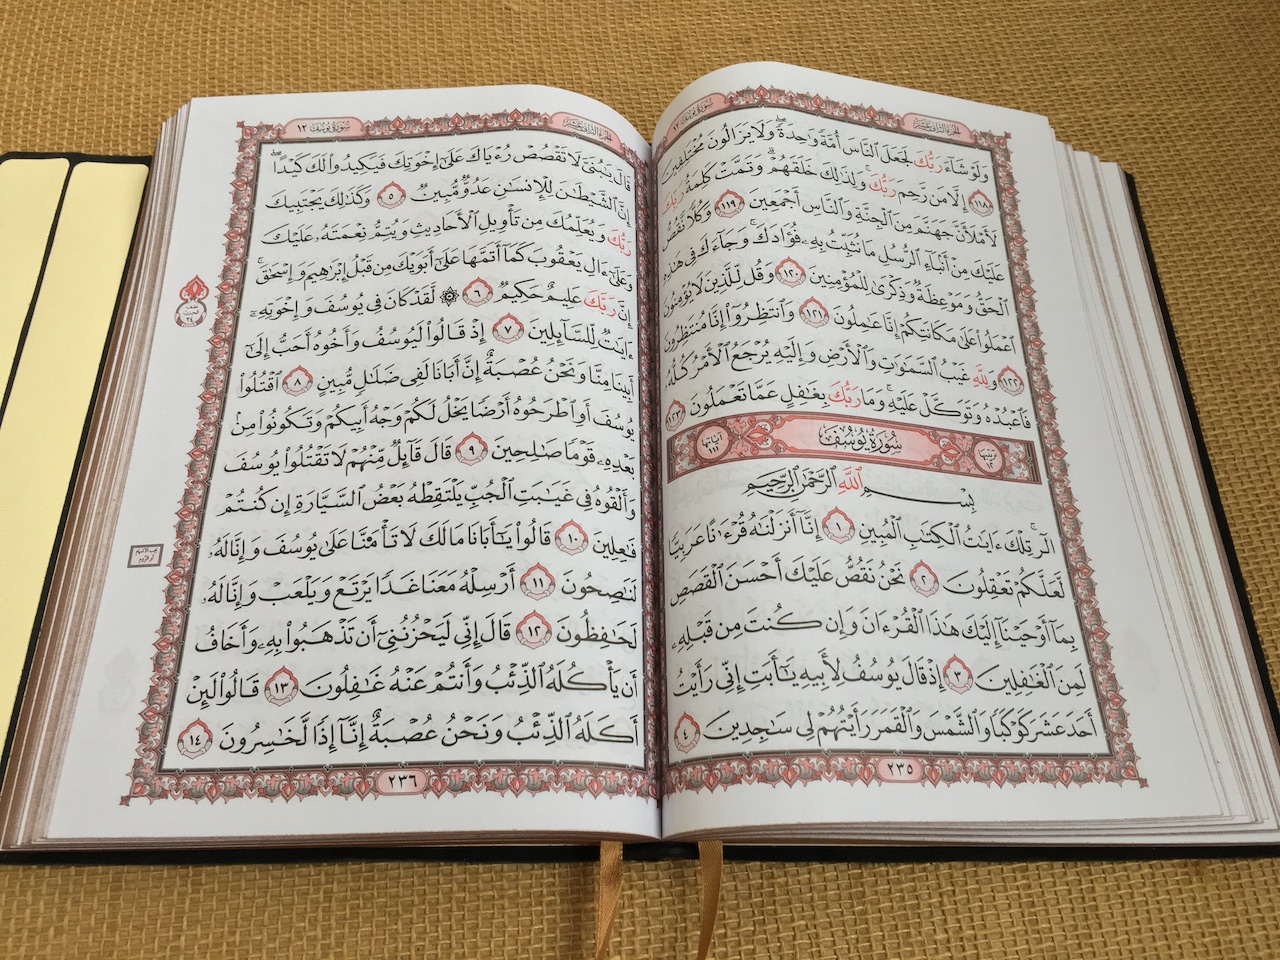 الجزء الثاني عشر
سورة يوسف ١٢
وَلَوْ شَآءَ رَبُّكَ لَجَعَلَ ٱلنَّاسَ أُمَّةً وَٰحِدَةً ۖ وَلَا يَزَالُونَ مُخْتَلِفِينَ
١١٨ إِلَّا مَن رَّحِمَ رَبُّكَ ۚ وَلِذَٰلِكَ خَلَقَهُمْ ۗ وَتَمَّتْ كَلِمَةُ رَبِّكَ
لَأَمْلَأَنَّ جَهَنَّمَ مِنَ ٱلْجِنَّةِ وَٱلنَّاسِ أَجْمَعِينَ ١١٩ وَكُلًّا نَّقُصُّ
عَلَيْكَ مِنْ أَنۢبَآءِ ٱلرُّسُلِ مَا نُثَبِّتُ بِهِۦ فُؤَادَكَ ۚ وَجَآءَكَ فِى هَٰذِهِ
ٱلْحَقُّ وَمَوْعِظَةٌ وَذِكْرَىٰ لِلْمُؤْمِنِينَ ١٢٠ وَقُل لِّلَّذِينَ لَا يُؤْمِنُونَ
ٱعْمَلُوا۟ عَلَىٰ مَكَانَتِكُمْ إِنَّا عَٰمِلُونَ ١٢١ وَٱنتَظِرُوٓا۟ إِنَّا مُنتَظِرُونَ
١٢٢ وَلِلَّهِ غَيْبُ ٱلسَّمَٰوَٰتِ وَٱلْأَرْضِ وَإِلَيْهِ يُرْجَعُ ٱلْأَمْرُ كُلُّهُۥ
فَٱعْبُدْهُ وَتَوَكَّلْ عَلَيْهِ ۚ وَمَا رَبُّكَ بِغَٰفِلٍ عَمَّا تَعْمَلُونَ ١٢٣
ترتيبها ١٢ سُورَةُ يُوسُفَ آياتها ١١١
بِسْمِ ٱللَّهِ ٱلرَّحْمَٰنِ ٱلرَّحِيمِ
الٓر ۚ تِلْكَ ءَايَٰتُ ٱلْكِتَٰبِ ٱلْمُبِينِ ١ إِنَّآ أَنزَلْنَٰهُ قُرْءَٰنًا عَرَبِيًّا
لَّعَلَّكُمْ تَعْقِلُونَ ٢ نَحْنُ نَقُصُّ عَلَيْكَ أَحْسَنَ ٱلْقَصَصِ
بِمَآ أَوْحَيْنَآ إِلَيْكَ هَٰذَا ٱلْقُرْءَانَ وَإِن كُنتَ مِن قَبْلِهِۦ
لَمِنَ ٱلْغَٰفِلِينَ ٣ إِذْ قَالَ يُوسُفُ لِأَبِيهِ يَٰٓأَبَتِ إِنِّى رَأَيْتُ
أَحَدَ عَشَرَ كَوْكَبًا وَٱلشَّمْسَ وَٱلْقَمَرَ رَأَيْتُهُمْ لِى سَٰجِدِينَ ٤
٢٣٥
الجزء الثاني عشر
سورة يوسف ١٢
قَالَ يَٰبُنَىَّ لَا تَقْصُصْ رُءْيَاكَ عَلَىٰٓ إِخْوَتِكَ فَيَكِيدُوا۟ لَكَ كَيْدًا ۖ
إِنَّ ٱلشَّيْطَٰنَ لِلْإِنسَٰنِ عَدُوٌّ مُّبِينٌ ٥ وَكَذَٰلِكَ يَجْتَبِيكَ
رَبُّكَ وَيُعَلِّمُكَ مِن تَأْوِيلِ ٱلْأَحَادِيثِ وَيُتِمُّ نِعْمَتَهُۥ عَلَيْكَ
وَعَلَىٰٓ ءَالِ يَعْقُوبَ كَمَآ أَتَمَّهَا عَلَىٰٓ أَبَوَيْكَ مِن قَبْلُ إِبْرَٰهِيمَ وَإِسْحَٰقَ ۚ
إِنَّ رَبَّكَ عَلِيمٌ حَكِيمٌ ٦ ۞ لَّقَدْ كَانَ فِى يُوسُفَ وَإِخْوَتِهِۦٓ
ءَايَٰتٌ لِّلسَّآئِلِينَ ٧ إِذْ قَالُوا۟ لَيُوسُفُ وَأَخُوهُ أَحَبُّ إِلَىٰٓ
أَبِينَا مِنَّا وَنَحْنُ عُصْبَةٌ إِنَّ أَبَانَا لَفِى ضَلَٰلٍ مُّبِينٍ ٨ ٱقْتُلُوا۟
يُوسُفَ أَوِ ٱطْرَحُوهُ أَرْضًا يَخْلُ لَكُمْ وَجْهُ أَبِيكُمْ وَتَكُونُوا۟ مِنۢ
بَعْدِهِۦ قَوْمًا صَٰلِحِينَ ٩ قَالَ قَآئِلٌ مِّنْهُمْ لَا تَقْتُلُوا۟ يُوسُفَ
وَأَلْقُوهُ فِى غَيَٰبَتِ ٱلْجُبِّ يَلْتَقِطْهُ بَعْضُ ٱلسَّيَّارَةِ إِن كُنتُمْ
فَٰعِلِينَ ١٠ قَالُوا۟ يَٰٓأَبَانَا مَا لَكَ لَا تَأْمَ۫نَّا عَلَىٰ يُوسُفَ وَإِنَّا لَهُۥ
لَنَٰصِحُونَ ١١ أَرْسِلْهُ مَعَنَا غَدًا يَرْتَعْ وَيَلْعَبْ وَإِنَّا لَهُۥ
لَحَٰفِظُونَ ١٢ قَالَ إِنِّى لَيَحْزُنُنِىٓ أَن تَذْهَبُوا۟ بِهِۦ وَأَخَافُ
أَن يَأْكُلَهُ ٱلذِّئْبُ وَأَنتُمْ عَنْهُ غَٰفِلُونَ ١٣ قَالُوا۟ لَئِنْ
أَكَلَهُ ٱلذِّئْبُ وَنَحْنُ عُصْبَةٌ إِنَّآ إِذًا لَّخَٰسِرُونَ ١٤
٢٣٦